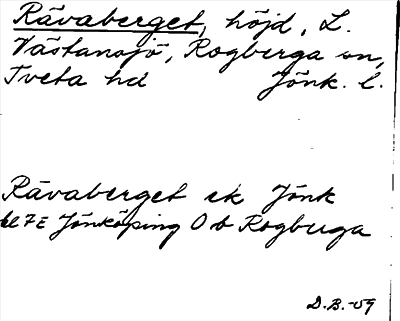 Rävaberget, höjd, L.
Västansjö, Rogberga sn,
Tveta hd Jönk. l.
Rävaberget ek Jönk
bl 7E Jönköping O b Rogberga
D.B.-59